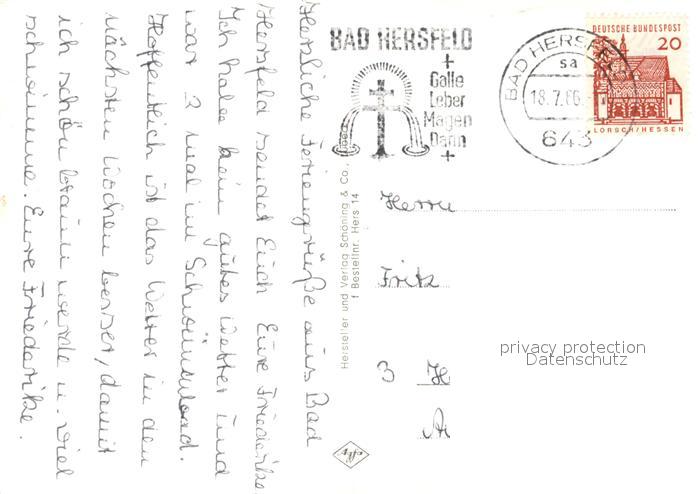 Herzliche Feriengrüße aus Bad
Hersfeld sendet Euch Eure Friederike
Ich habe kein gutes Wetter und
war 3 mal im Schwimmbad.
Hoffentlich ist das Wetter in den
nächsten Wochen besser, damit
ich schön braun werde u. viel
schwimme. Eure Friederike.
BAD HERSFELD
Galle
Leber
Magen
Darm
BAD HERSFELD
sa
18.7.66
643
DEUTSCHE BUNDESPOST
20
LORSCH/HESSEN
Hersteller und Verlag Schöning & Co.
Bestellnr. Hers 14
Herrn
Fritz
privacy protection
Datenschutz